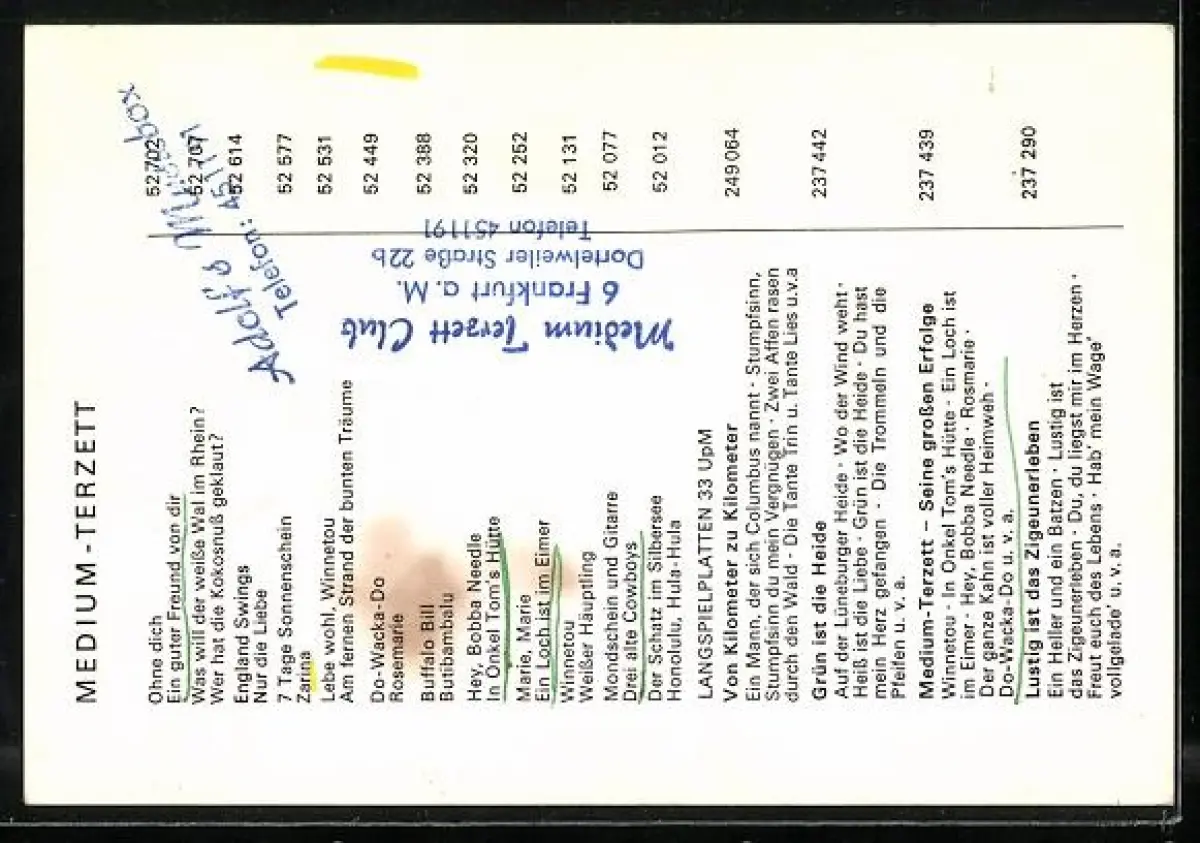 MEDIUM-TERZETT
Ohne dich 52 702
Ein guter Freund von dir
Was will der weiße Wal im Rhein? 52 707
Wer hat die Kokosnuß geklaut?
England Swings 52 614
Nur die Liebe
7 Tage Sonnenschein 52 577
Zarina
Lebe wohl, Winnetou 52 531
Am fernen Strand der bunten Träume
Do-Wacka-Do 52 449
Rosemarie
Buffalo Bill 52 388
Butibambalu
Hey, Bobba Needle 52 320
In Onkel Tom's Hütte
Marie, Marie 52 252
Ein Loch ist im Eimer
Winnetou 52 131
Weißer Häuptling
Mondschein und Gitarre 52 077
Drei alte Cowboys
Der Schatz im Silbersee 52 012
Honolulu, Hula-Hula
LANGSPIELPLATTEN 33 UpM
Von Kilometer zu Kilometer 249 064
Ein Mann, der sich Columbus nannt · Stumpfsinn,
Stumpfsinn du mein Vergnügen · Zwei Affen rasen
durch den Wald · Die Tante Trin u. Tante Lies u.v.a
Grün ist die Heide 237 442
Auf der Lüneburger Heide · Wo der Wind weht ·
Heiß ist die Liebe · Grün ist die Heide · Du hast
mein Herz gefangen · Die Trommeln und die
Pfeifen u. v. a.
Medium-Terzett – Seine großen Erfolge 237 439
Winnetou · In Onkel Tom's Hütte · Ein Loch ist
im Eimer · Hey, Bobba Needle · Rosmarie ·
Der ganze Kahn ist voller Heimweh ·
Do-Wacka-Do u. v. a.
Lustig ist das Zigeunerleben 237 290
Ein Heller und ein Batzen · Lustig ist
das Zigeunerleben · Du, du liegst mir im Herzen ·
Freut euch des Lebens · Hab' mein Wage'
vollgelade' u. v. a.
Adolf's Musicbox
Telefon: 451191
Medium Terzett Club
6 Frankfurt a. M.
Dortelweiler Straße 22b
Telefon 451191